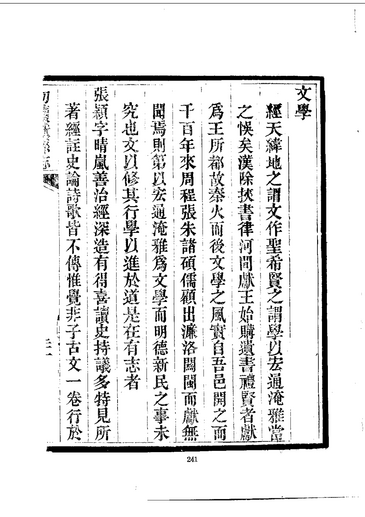 文學
經天緯地之謂文作聖希賢之謂學以宏通淹雅當
之悞矣漢除挾書律河間獻王始購遺書禮賢者獻
爲王所都故秦火而後文學之風實自吾邑開之而
千百年來周程張朱諸碩儒顯出濂洛關閩而獻無
聞焉則第以宏通淹雅爲文學而明德新民之事未
究也文以修其行學以進於道是在有志者
張潁字晴嵐善治經深造有得喜讀史持議多特見所
著經註史論詩歌皆不傳惟覺非子古文一卷行於
241